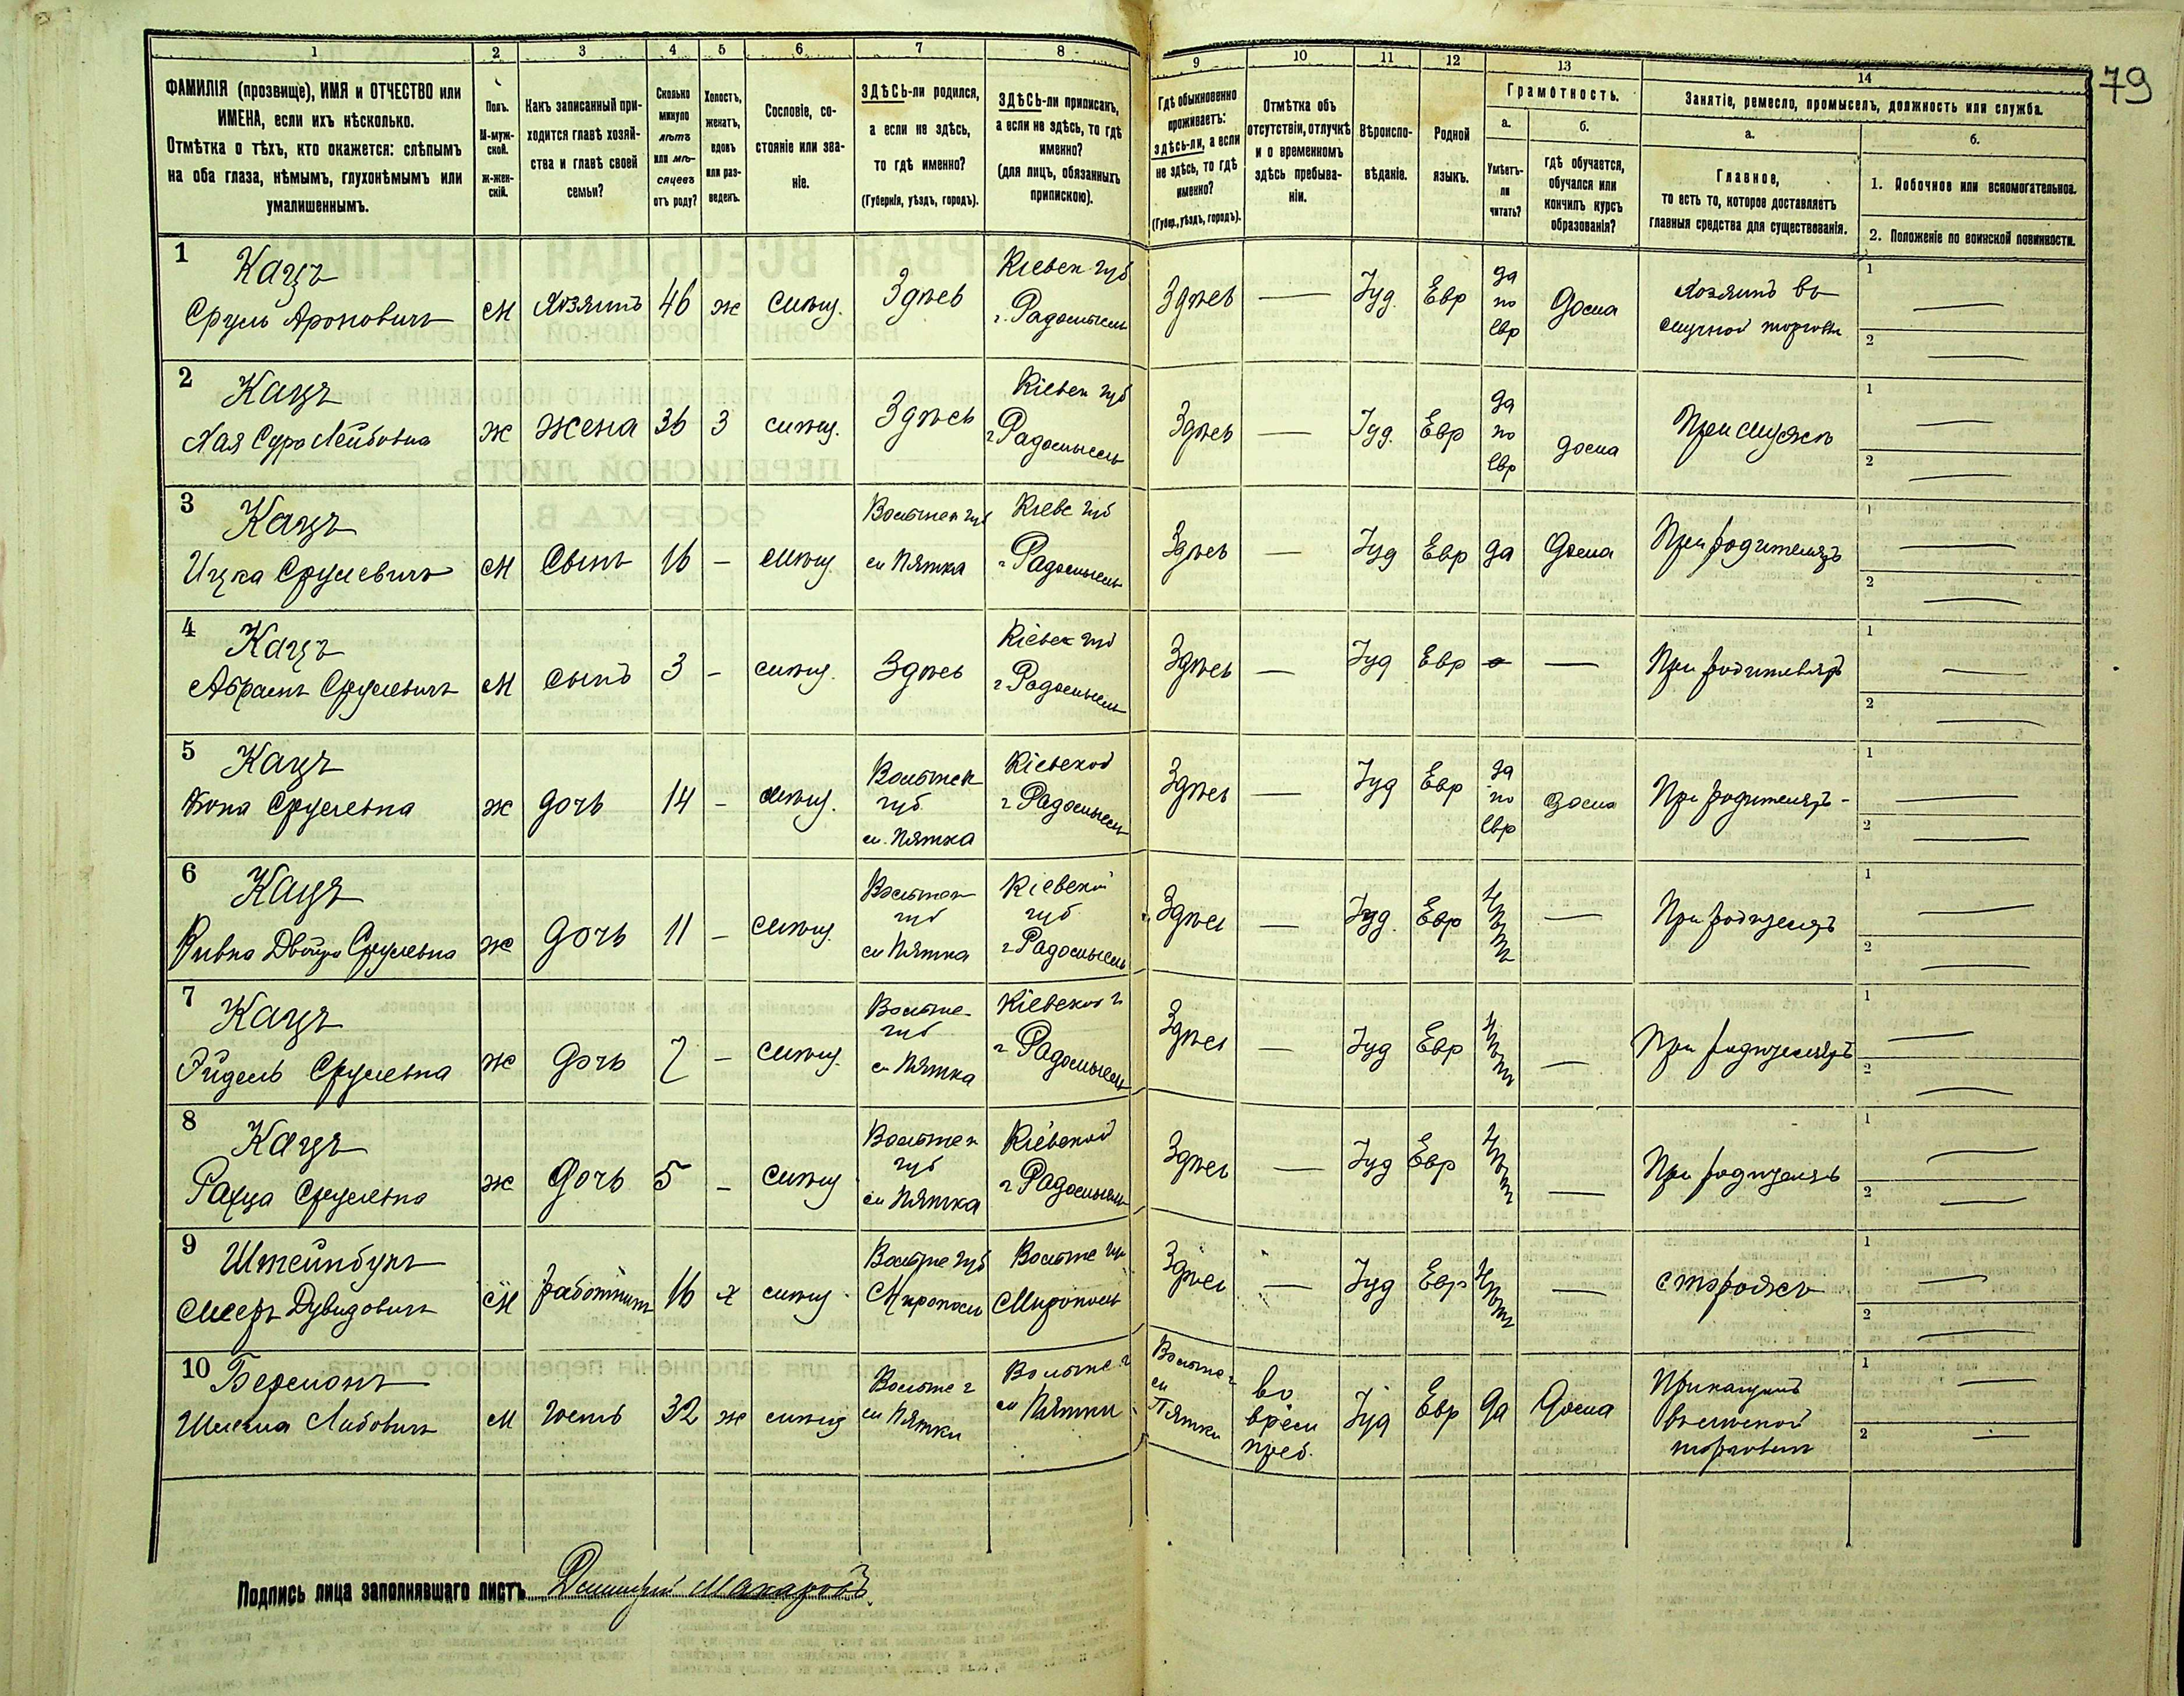 79
1 2 3 4 5 6 7 8 9 10 11 12 13 14
ФАМИЛІЯ (прозвище), ИМЯ и ОТЧЕСТВО или
ИМЕНА, если ихъ нѣсколько.
Отмѣтка о тѣхъ, кто окажется: слѣпымъ
на оба глаза, нѣмымъ, глухонѣмымъ или
умалишеннымъ.
Полъ.
М-муж-
ской.
ж-жен-
скій.
Какъ записанный при-
ходится главѣ хозяй-
ства и главѣ своей
семьи?
Сколько
минуло
лѣтъ
или мѣ-
сяцевъ
отъ роду?
Холостъ,
женатъ,
вдовъ
или раз-
веденъ.
Сословіе, со-
стояніе или зва-
ніе.
ЗДѢСЬ-ли родился,
а если не здѣсь,
то гдѣ именно?
(Губернія, уѣздъ, городъ).
ЗДѢСЬ-ли приписанъ,
а если не здѣсь, то гдѣ
именно?
(для лицъ, обязанныхъ
припискою).
Гдѣ обыкновенно
проживаетъ:
здѣсь-ли, а если
не здѣсь, то гдѣ
именно?
(Губер., уѣздъ, городъ).
Отмѣтка объ
отсутствіи, отлучкѣ
и о временномъ
здѣсь пребыва-
ніи.
Вѣроиспо-
вѣданіе.
Родной
языкъ.
Грамотность.
а.
Умѣетъ-
ли
читать?
б.
гдѣ обучается,
обучался или
кончилъ курсъ
образованія?
Занятіе, ремесло, промыселъ, должность или служба.
а.
Главное,
то есть то, которое доставляетъ
главныя средства для существованія.
б.
1. Побочное или вспомогательное.
2. Положеніе по воинской повинности.
1 Кацъ
Сруль Ароновичъ м Хозяинъ 46 ж мѣщ. Здѣсь
Кіевск губ
г. Радомысль
Здѣсь — Іуд. Евр
да
по
евр
дома
Хозяинъ
торговли
1 —
2 —
2 Кацъ
Хая Сура Лейбовна ж жена 36 З мѣщ. Здѣсь
Кіевск губ
г Радомысль
Здѣсь — Іуд. Евр
да
по
евр
дома
При мужѣ
1 —
2 —
3 Кацъ
Ицка Срулевичъ м Сынъ 16 – мѣщ
Волынск губ
м Пятка
Кіевс губ
г Радомысль
Здѣсь — Іуд Евр да дома
При родителяхъ
1 —
2 —
4 Кацъ
Абрамъ Срулевичъ м сынъ 3 – мѣщ. Здѣсь
Кіевск губ
г Радомысль
Здѣсь — Іуд Евр — —
При родителяхъ
1 —
2 —
5 Кацъ
Срулевна ж дочь 14 – мѣщ.
Волынск
губ
м. Пятка
Кіевской
г Радомысль
Здѣсь — Іуд Евр
да
по
евр
дома
При родителяхъ
1 —
2 —
6 Кацъ
Ривка Двойра Срулевна ж дочь 11 – мѣщ.
Волынск
губ
м Пятка
Кіевской
губ
г Радомысль
Здѣсь — Іуд. Евр нѣтъ —
При родителяхъ
1 —
2 —
7 Кацъ
Эйдель Срулевна ж дочь 7 – мѣщ.
Волынс
губ
м Пятка
Кіевской г
г Радомысль
Здѣсь — Іуд Евр нѣтъ —
При родителяхъ
1 —
2 —
8 Кацъ
Срулевна ж дочь 5 – мѣщ
Волынск
губ
м Пятка
Кіевской
г Радомысль
Здѣсь — Іуд Евр нѣтъ —
При родителяхъ
1 —
2 —
9
Дувидовичъ м работникъ 16 х мѣщ
Волынс губ
Мирополь
Мирополь
Здѣсь — Іуд Евр нѣтъ —
сторожъ
1 —
2 —
10 Берманъ
м гость 32 ж мѣщ
Волынс г
м Пятки
Волынс г
м Пятки
Волынс г
м
Пятки
во
врем
преб.
Іуд Евр да дома
Прикащикъ
торговли
1 —
2 —
Подпись лица заполнявшаго листъ Дмитрій Макаровъ.